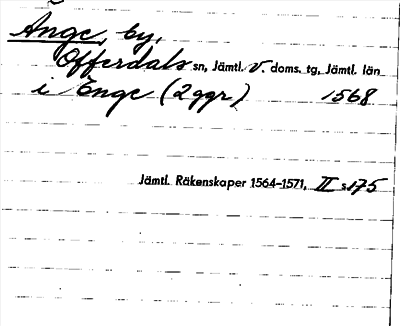 Ånge, by,
Offerdals sn, Jämtl. V. doms. tg, Jämtl. län
i Enge (2 ggr) 1568
Jämtl. Räkenskaper 1564–1571, II s 175